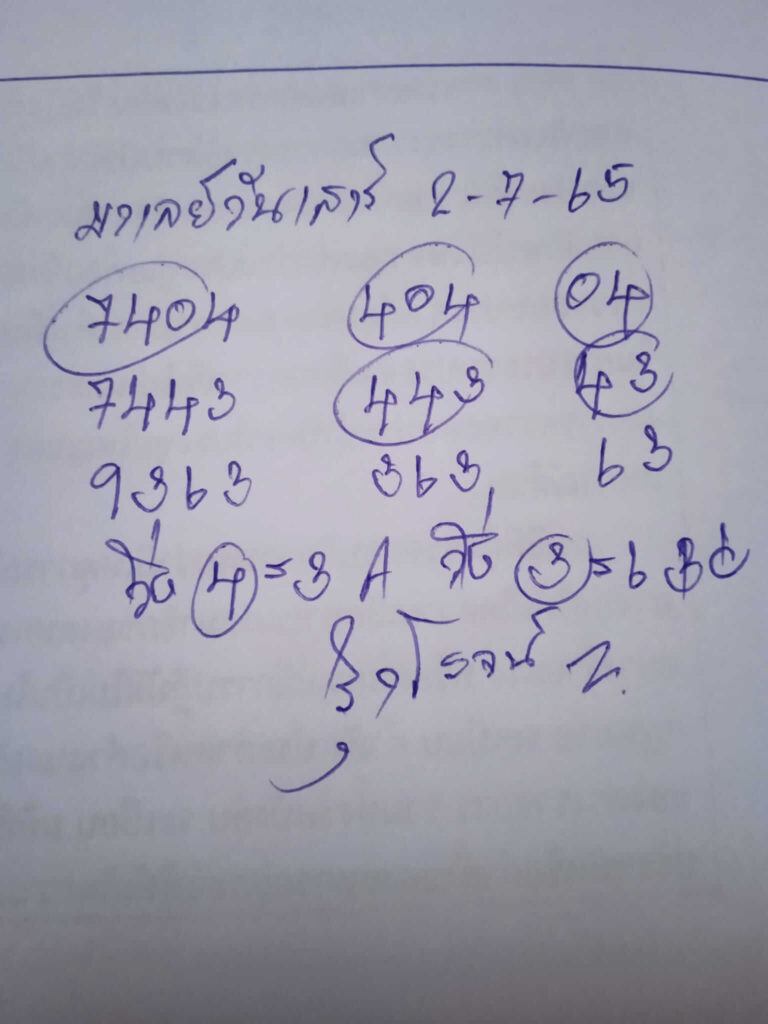 มาเลย์วันเสาร์ 2-7-65
7404 404 04
7443 443 43
9363 363 63
วิ่ง 4=3 A วิ่ง 3=6
โรจน์ ห.